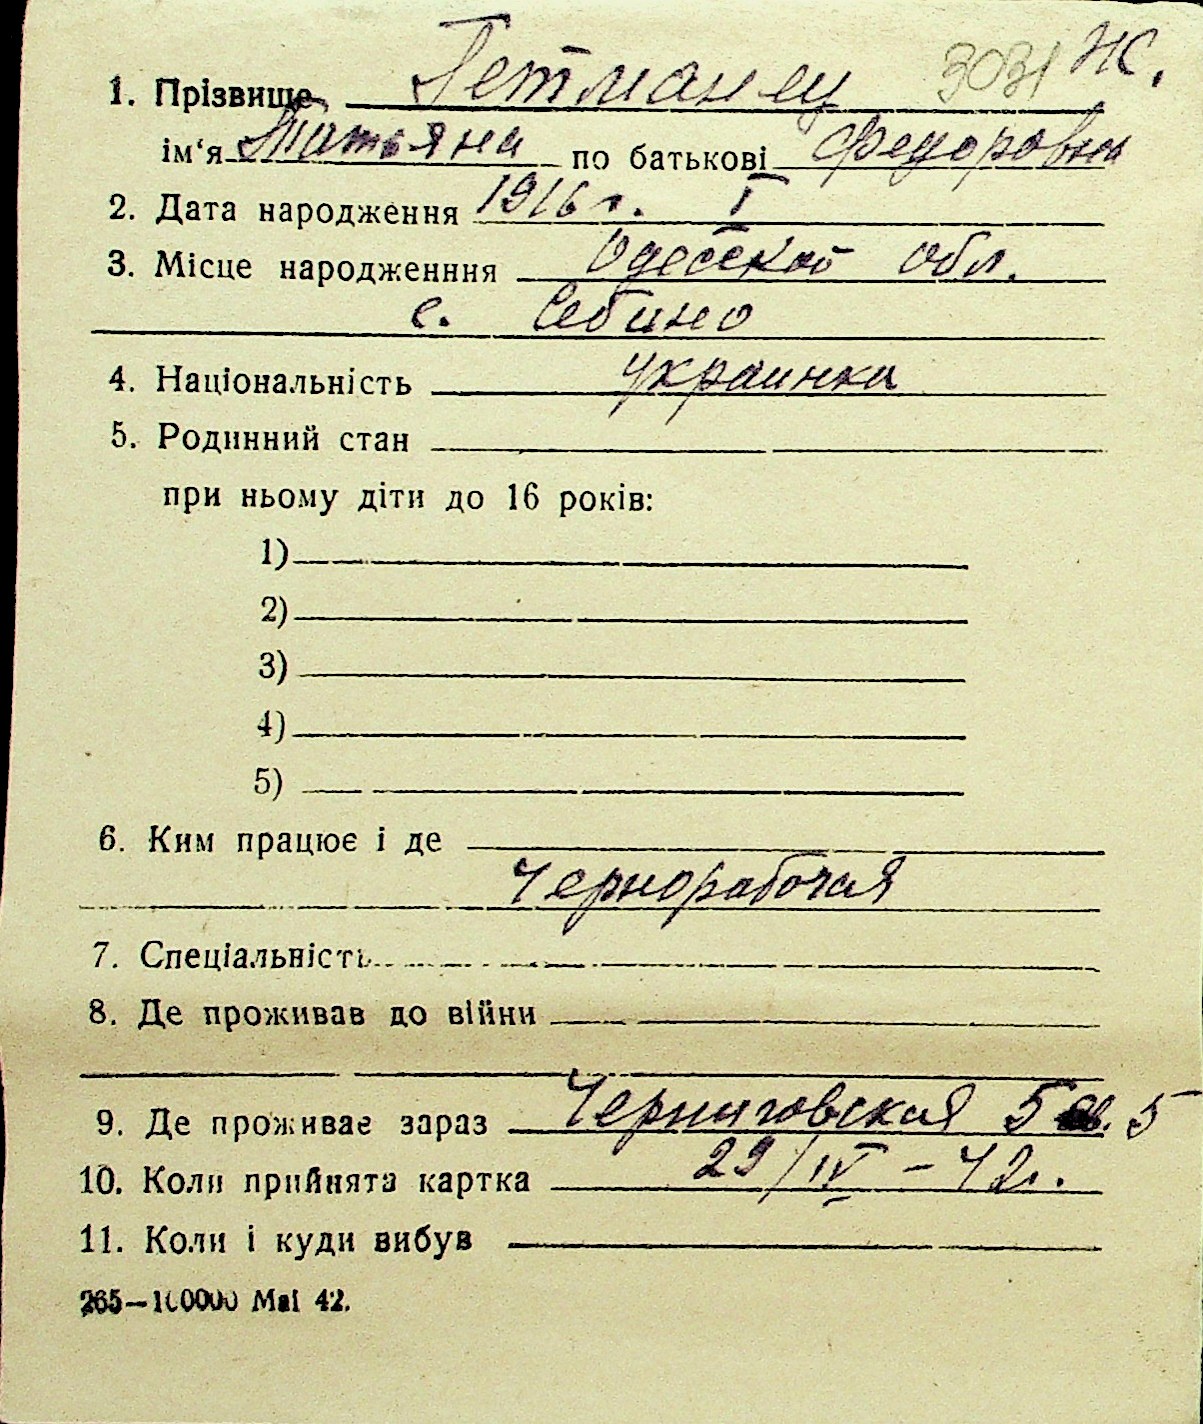 3031 Ж.
1. Прізвище Гетманец
ім'я Татьяна по батькові Федоровна
2. Дата народження 1916 г. I
3. Місце народженння Одесской обл.
с. Себино
4. Національність украинка
5. Родинний стан
при ньому діти до 16 років:
1)
2)
3)
4)
5)
6. Ким працює і де
Чернорабочая
7. Спеціальність
8. Де проживав до війни
9. Де проживає зараз Черниговская 5 кв. 5
10. Коли прийнята картка 29/IV - 42 г.
11. Коли і куди вибув
265—100000 Mai 42.